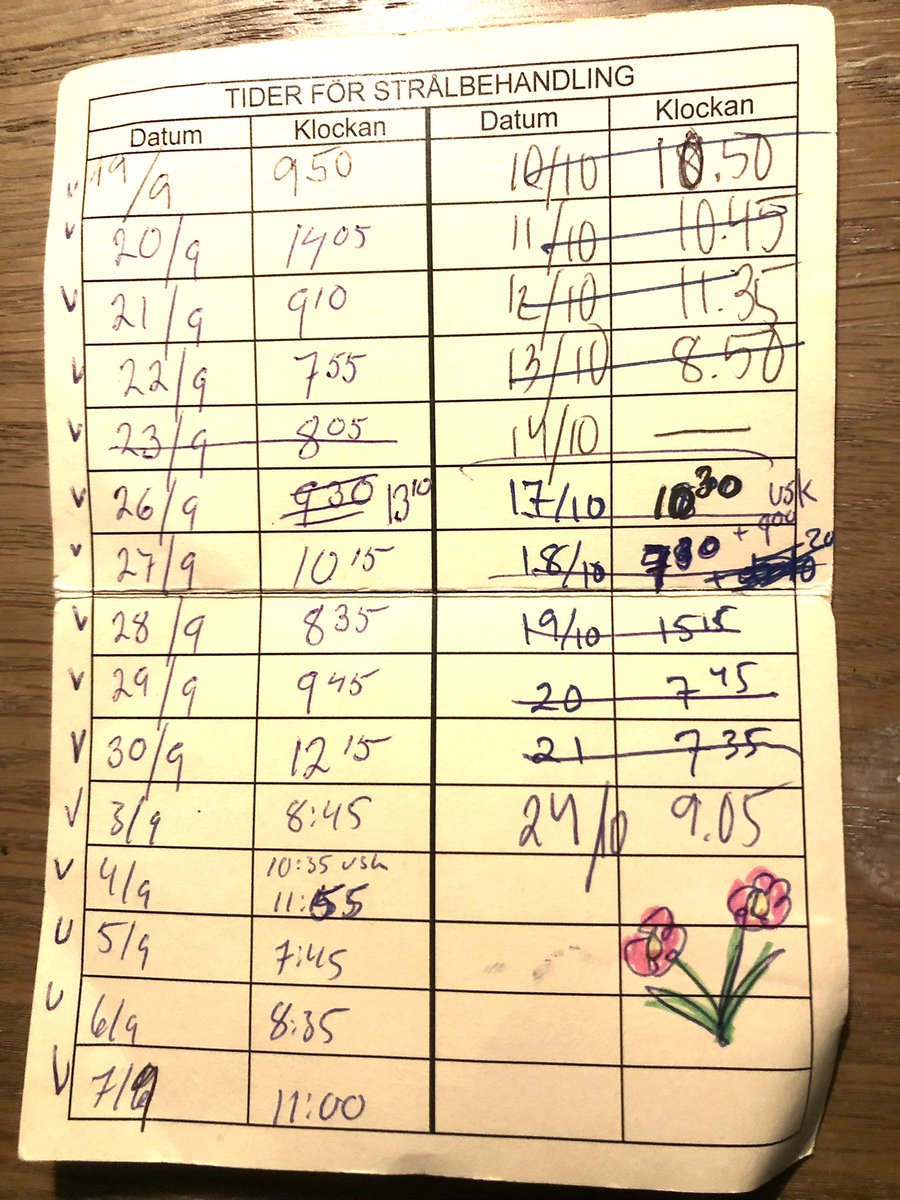 TIDER FÖR STRÅLBEHANDLING
Datum Klockan Datum Klockan
19/9 9 50
20/9 14 05
21/9 9 10
22/9 7 55
23/9 8 05
26/9 9 30 13 10
27/9 10 15
28/9 8 35
29/9 9 45
30/9 12 15
3/9 8:45
4/9 10:35 usk
11:55
5/9 7:45
6/9 8:35
7/9 11:00
10/10 10.50
11/10 10.45
12/10 11.35
13/10 8.50
14/10 —
17/10 10 30 usk
18/10 7 30 + 9 00
+ 20
19/10 15 15
20 7 45
21 7 35
24/10 9.05